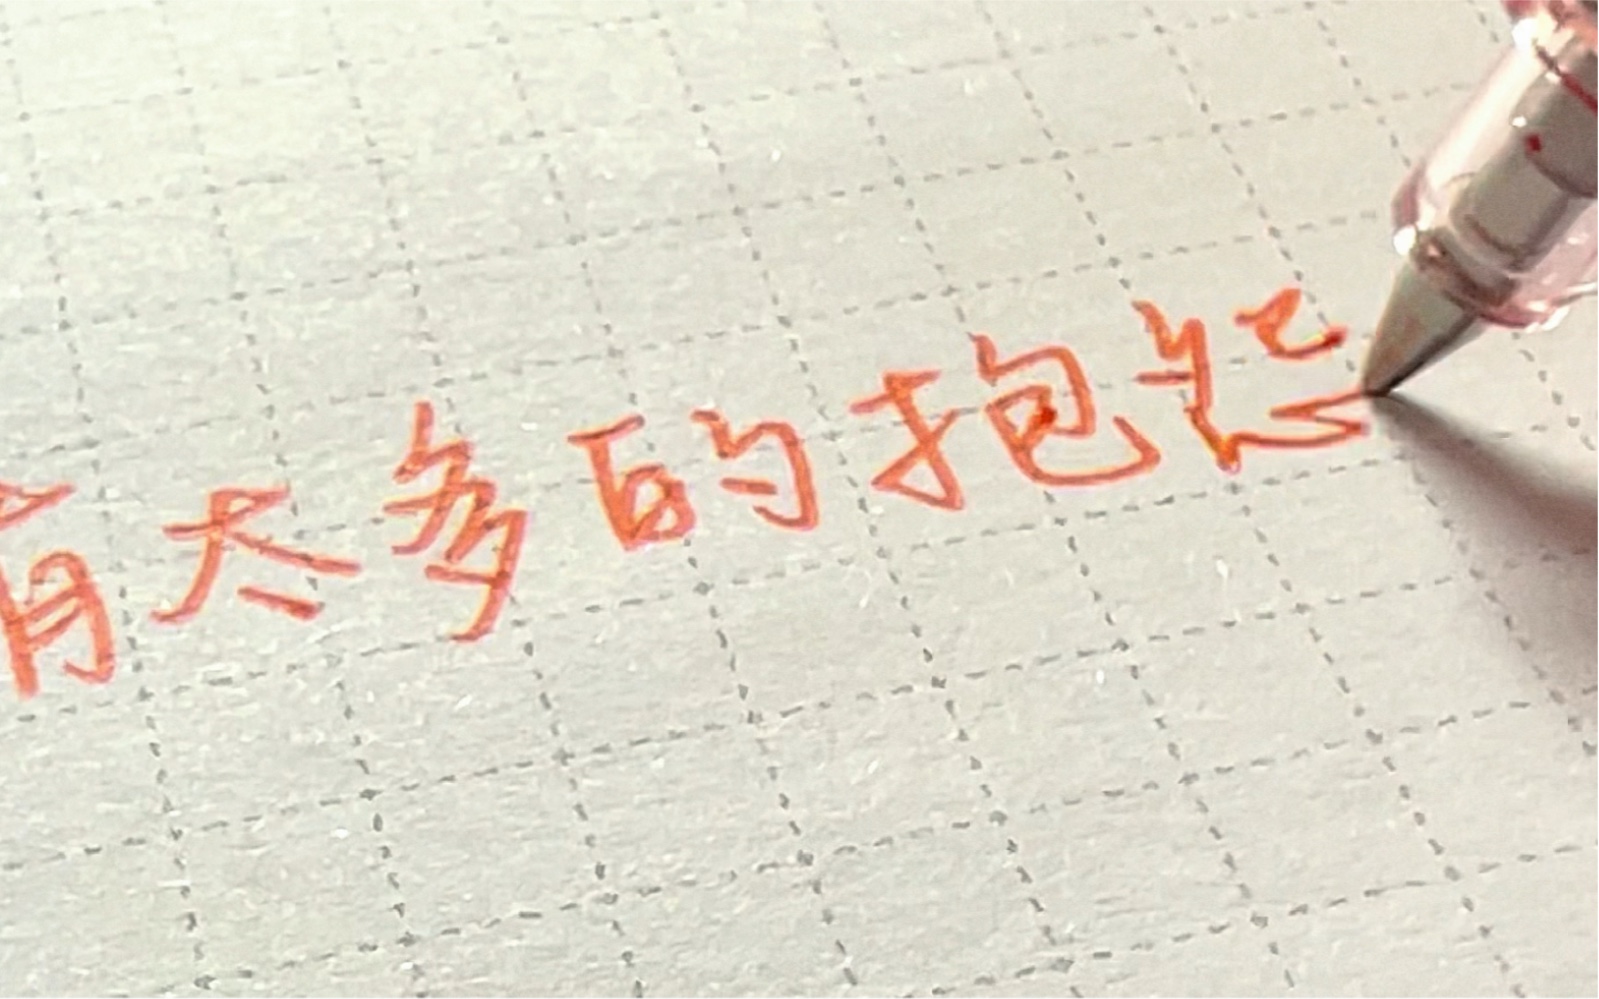 有太多的抱怨